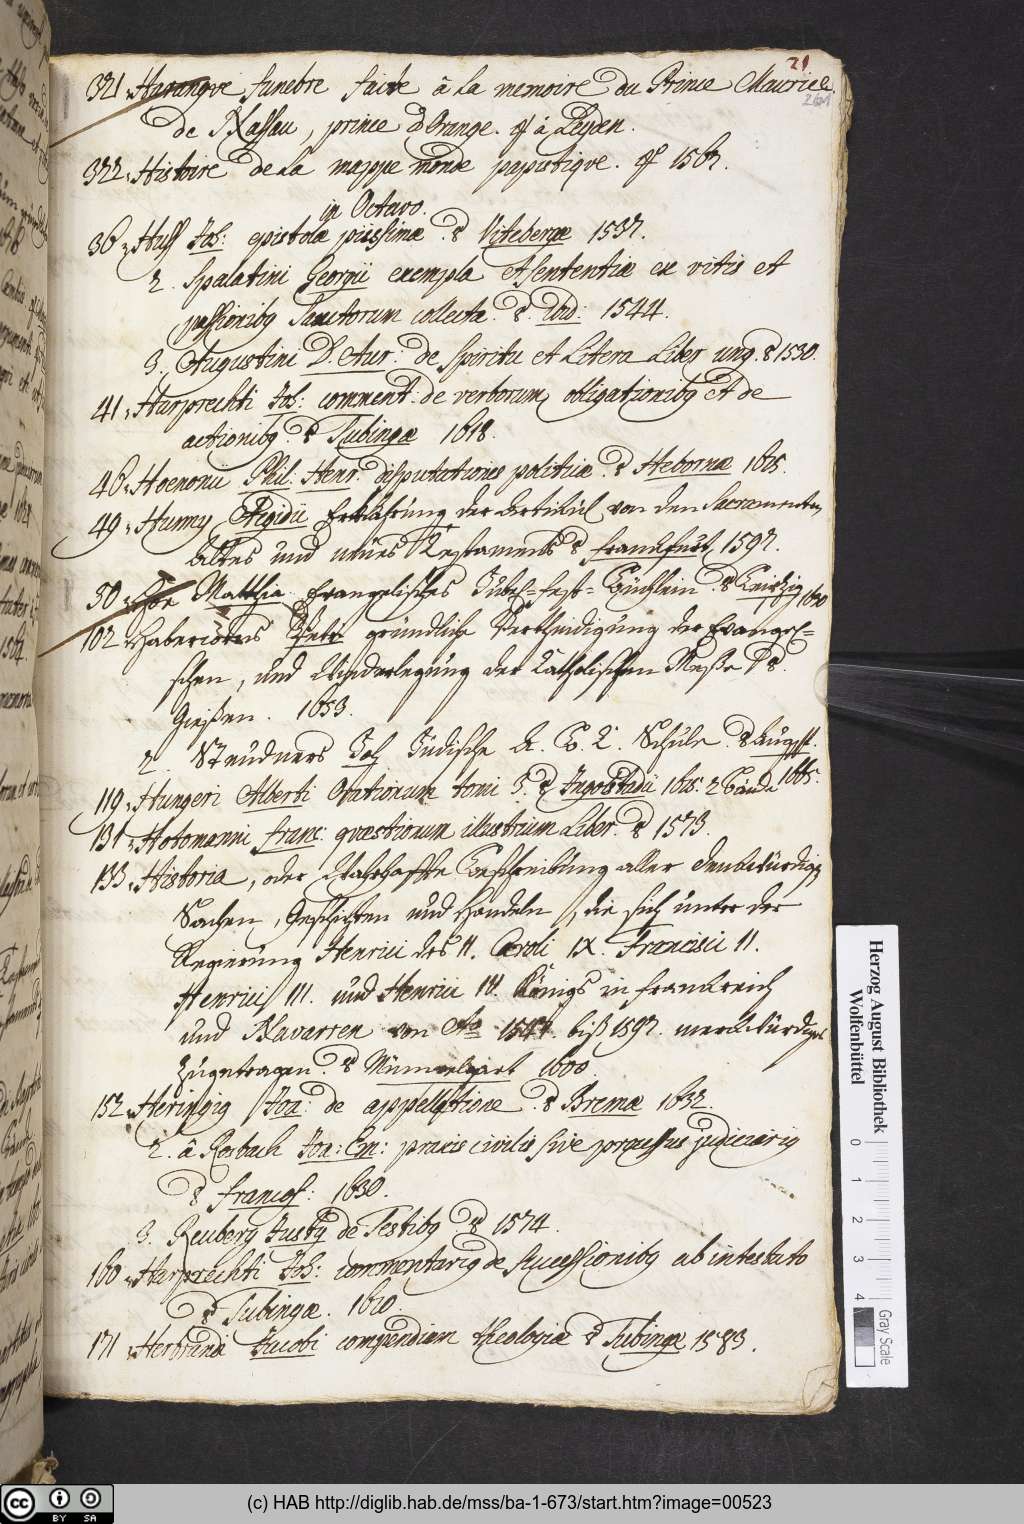 21
321. Harangve funebre faite â la memoire du Prince Maurice
de Nassau, prince d'Orange. 4 â Leyden.
322. Histoire de la mappe monde papistiqve. 4 1567.
in Octavo.
36. Huss Joh: epistolæ piissimæ. 8 Vitebergæ 1537.
2. Spalatini Georgii exempla et sententiæ ex vitis et
passionibg Sanctorum collecta. 8. Ibid: 1544.
3. Augustini D. Aur: de Spiritu et Litera Liber ung. 8 1530.
41. Harprechti Joh: comment. de verborum obligationibg et de
actionibg. 8 Tubingæ 1618.
46. Hoenonii Phil: Henr: disputationes politicæ. 8 Hebornæ 1615.
49. Hunny Ægidii Erklährung der Artickul von den Sacramenten
Altes und neües Testaments 8 Franckfurt, 1597.
50. Hoe Matthiæ Evangelisches Jubel-fest-Büchlein. 8 Leipzig
102. Haberkorns Petr: gründliche Vertheidigung der Evangel-
schen, und Wiederlegung der Catholischen Meße 8.
Gießen. 1653.
2. Steudners Joh Jüdische A. B. C. Schule. 8 Augsp.
1665.
119. Hungeri Alberti Orationum tomi 3. 8 Ingolstadii 1615. 2 Bände
131. Hotomanni Franc: quæstionum illustrium Liber. 8 1573.
133. Historia, oder Wahrhaffte Beschreibung aller denckwürdigen
Sachen, Geschichten und Handeln, die sich unter der
Regierung Henrici des II. Caroli IX. Francisci II.
Henrici III. und Henrici IV. Königs in Franckreich
und Navarren von Ao biß 1597. merckwürdiges
zugetragen. 8 Mümpelgart 1600.
152. Heringig Joa: de appellatione. 8 Bremæ 1632.
2. â Rosbach Joa: Em: praxis civilis sive processus judiciarig
8 Francof: 1630.
3. Reuberg Justg de Testibg. 8 1574.
160. Harprechti Joh: commentarig de successionibg ab intestato
8 Tubingæ. 1610.
171. Herbrandi Jacobi compendium theologiæ 8 Tubingæ 1583.
Herzog August Bibliothek
Wolfenbüttel
0 1 2 3 4
Gray Scale
CC BY SA
(c) HAB http://diglib.hab.de/mss/ba-1-673/start.htm?image=00523